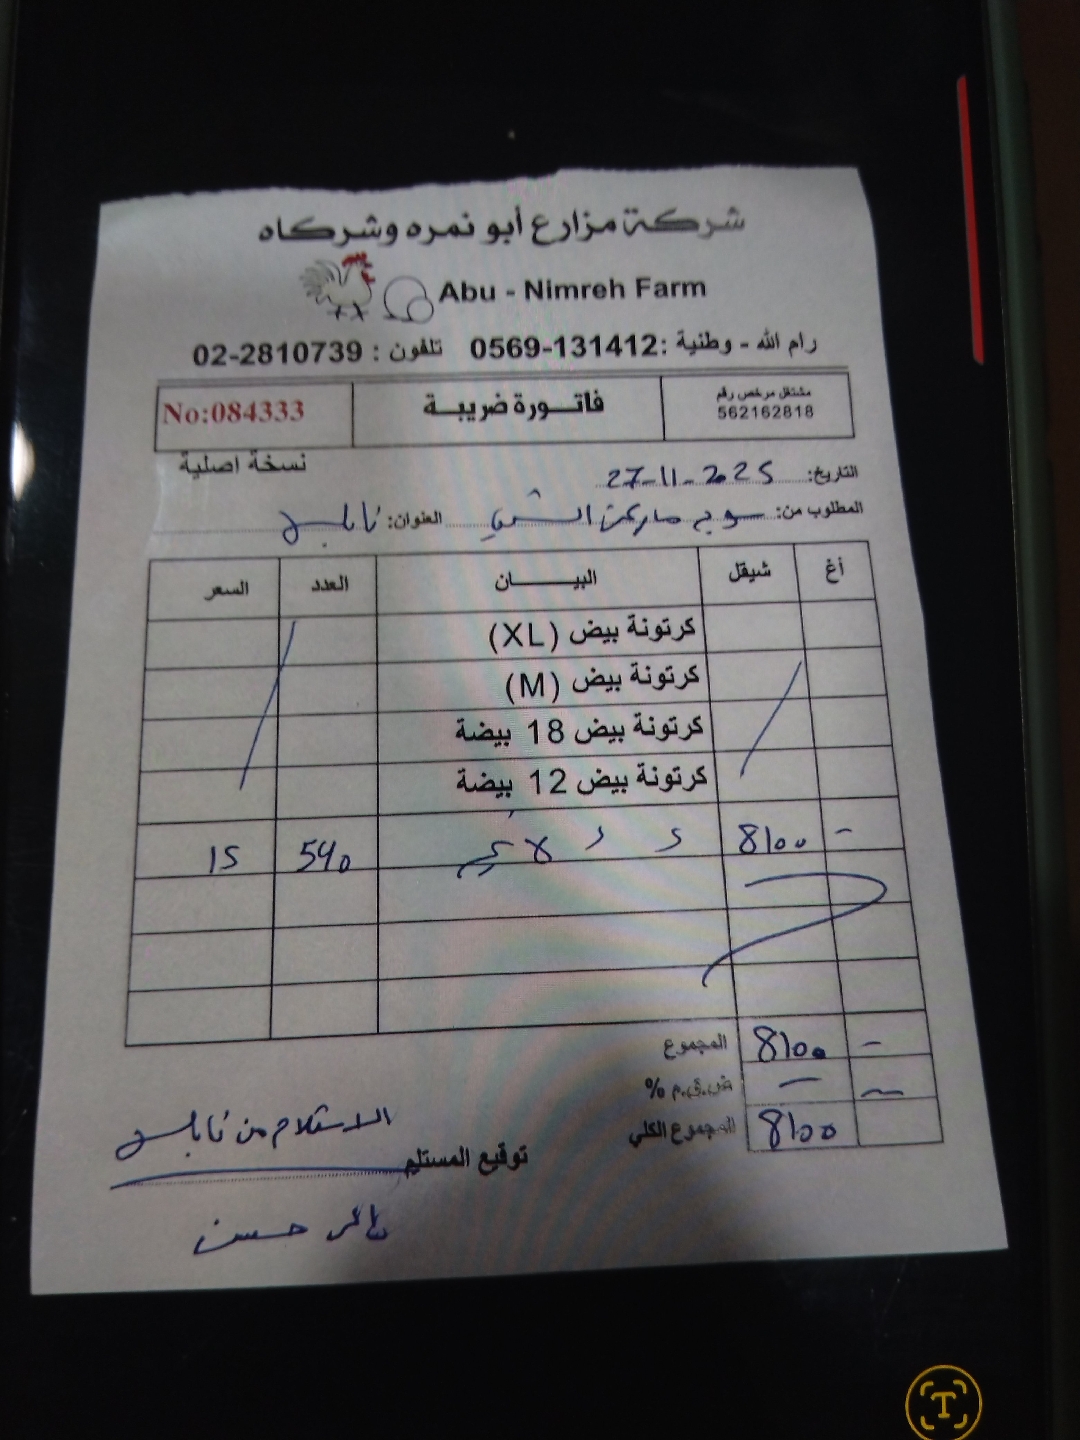 شركة مزارع أبو نمره وشركاه
Abu - Nimreh Farm
رام الله - وطنية :0569-131412 تلفون : 02-2810739
مشتغل مرخص رقم
562162818
فاتـــورة ضريبـــة
No:084333
نسخة اصلية
التاريخ: 27-11-2025
المطلوب من: سوبر ماركت العنوان: نابلس
أغ شيقل البيـــــــان العدد السعر
كرتونة بيض (XL)
كرتونة بيض (M)
كرتونة بيض 18 بيضة
كرتونة بيض 12 بيضة
- 8100 540 15
المجموع 8100 -
ض.ق.م % - -
المجموع الكلي 8100
توقيع المستلم الاستلام من نابلس
حسن
T